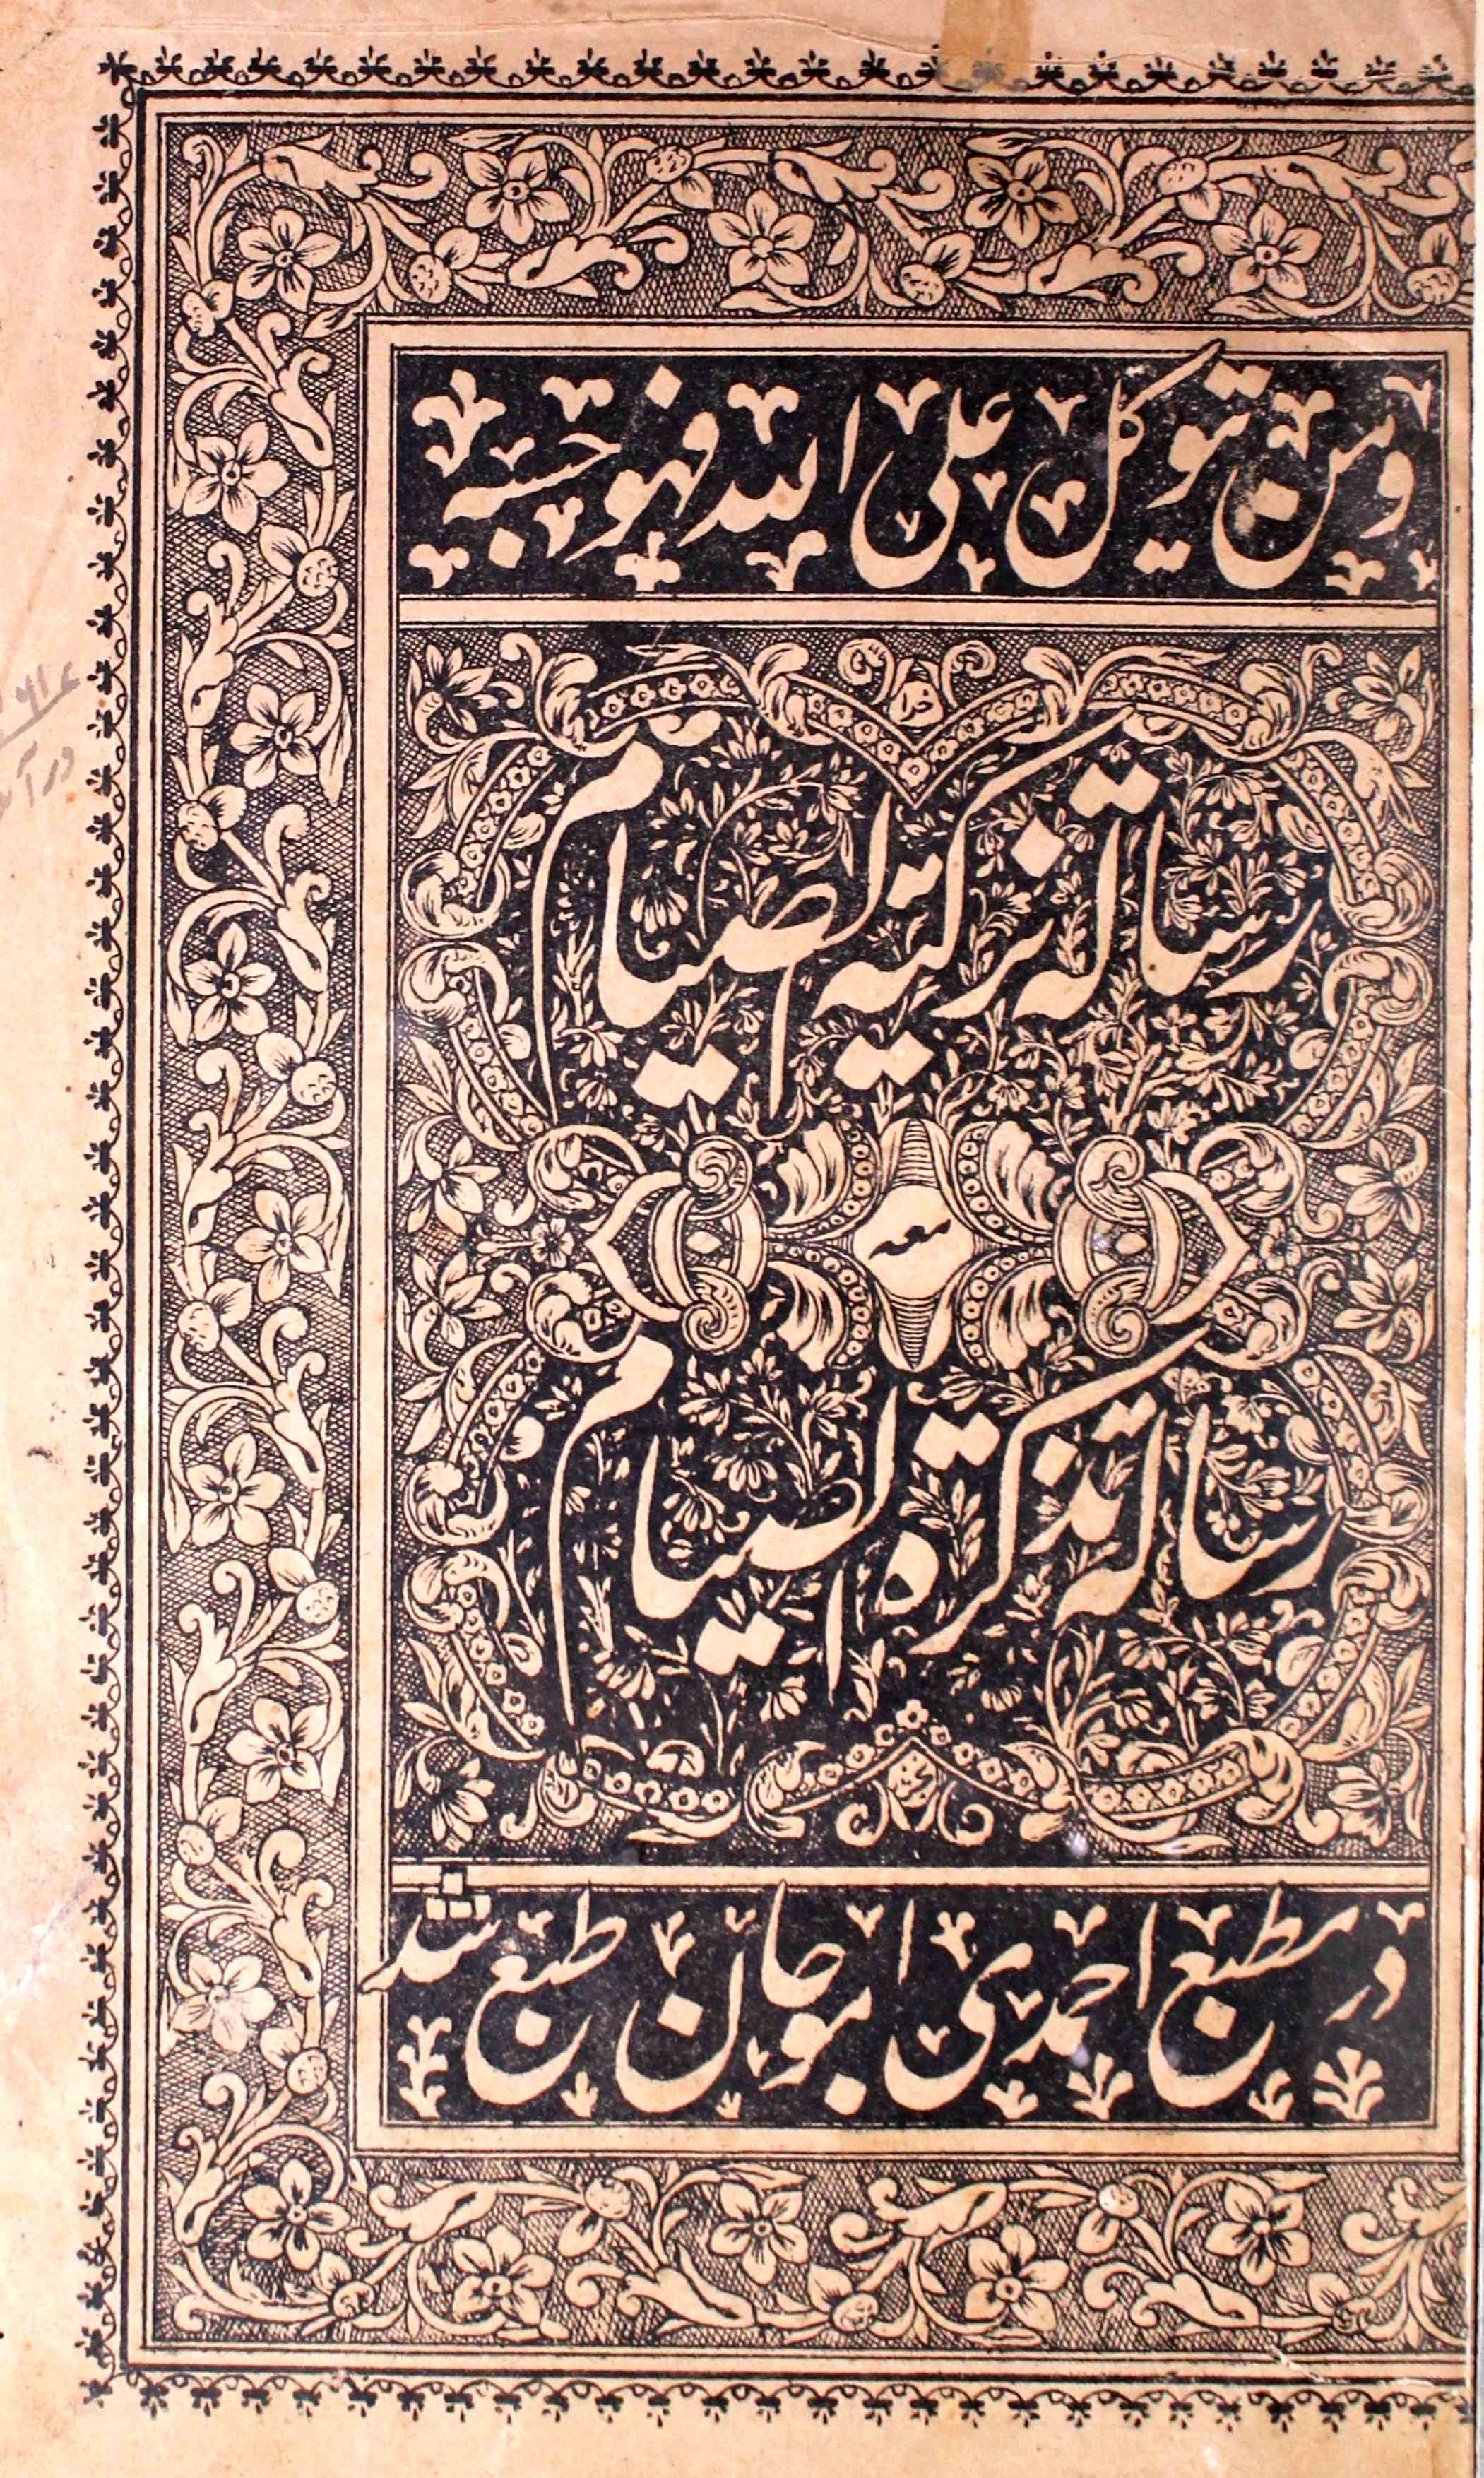 ومن یتوکل علی الله فهو حسبه
رساله تزکیة الصیام
معه
رساله تذکرة الصیام
در مطبع احمدی ابوجان طبع شد